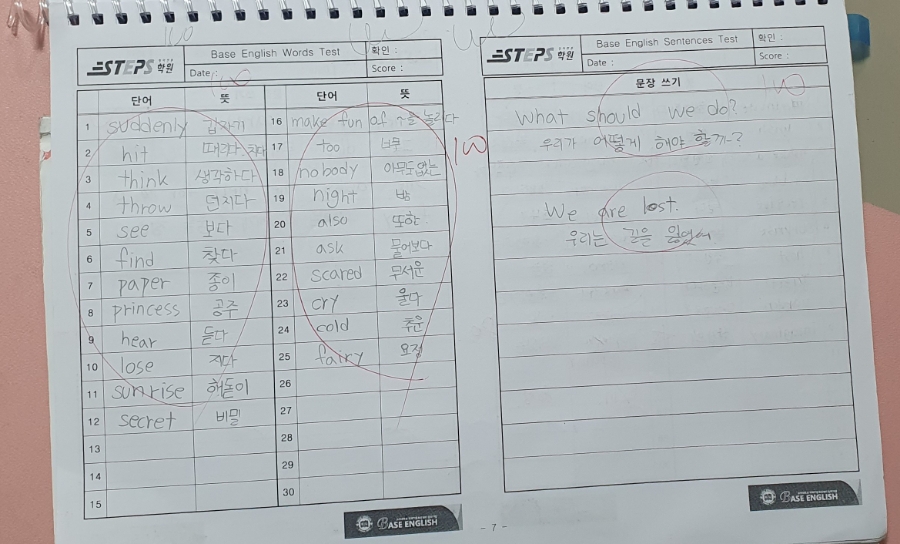 STEPS 학원
Base English Words Test
확인 :
Date :
Score :
단어 뜻 단어 뜻
1 suddenly 갑자기
2 hit 때리다, 치다
3 think 생각하다
4 throw 던지다
5 see 보다
6 find 찾다
7 paper 종이
8 princess 공주
9 hear 듣다
10 lose 지다
11 sunrise 해돋이
12 secret 비밀
13
14
15
16 make fun of 놀리다
17 too 너무
18 nobody 아무도없는
19 night 밤
20 also 또한
21 ask 물어보다
22 scared 무서운
23 cry 울다
24 cold 추운
25 fairy 요정
26
27
28
29
30
BASE ENGLISH
STEPS 학원
Base English Sentences Test
확인 :
Date :
Score :
문장 쓰기
100
What should we do?
우리가 어떻게 해야 할까?
We are lost.
우리는 길을 잃었어
BASE ENGLISH
- 7 -